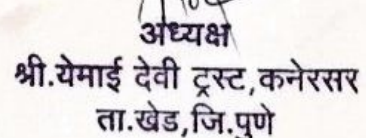 अध्यक्ष
श्री.येमाई देवी ट्रस्ट,कनेरसर
ता.खेड,जि.पुणे